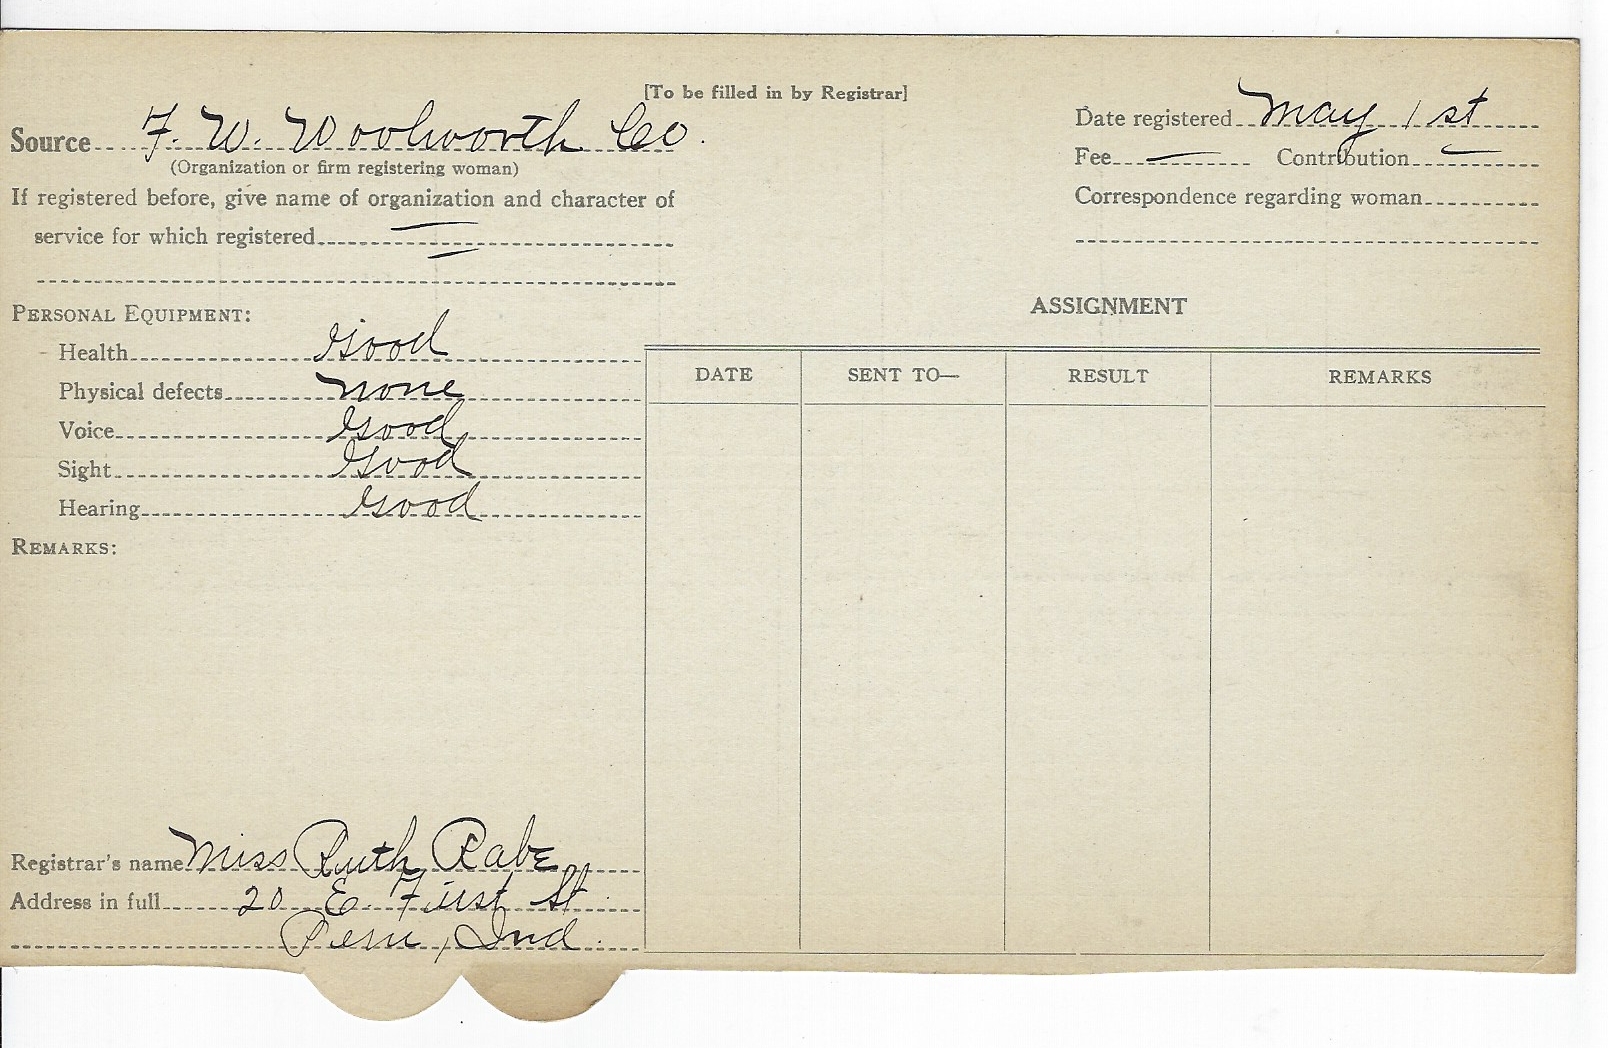 [To be filled in by Registrar]
Source F. W. Woolworth Co.
(Organization or firm registering woman)
If registered before, give name of organization and character of
service for which registered —
Date registered May 1st
Fee — Contribution —
Correspondence regarding woman
PERSONAL EQUIPMENT:
Health Good
Physical defects none
Voice Good
Sight Good
Hearing Good
REMARKS:
Registrar's name Miss Ruth Rabe
Address in full 20 E. First St.
Peru, Ind.
ASSIGNMENT
DATE SENT TO— RESULT REMARKS